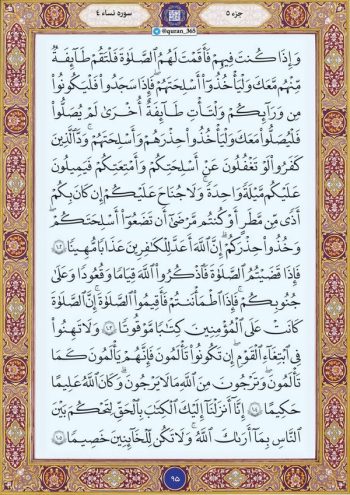 جزء ۵
@quran_365
سوره نساء ۴
وَإِذَا كُنتَ فِيهِمْ فَأَقَمْتَ لَهُمُ ٱلصَّلَوٰةَ فَلْتَقُمْ طَآئِفَةٌ
مِّنْهُم مَّعَكَ وَلْيَأْخُذُوٓا۟ أَسْلِحَتَهُمْ فَإِذَا سَجَدُوا۟ فَلْيَكُونُوا۟
مِن وَرَآئِكُمْ وَلْتَأْتِ طَآئِفَةٌ أُخْرَىٰ لَمْ يُصَلُّوا۟
فَلْيُصَلُّوا۟ مَعَكَ وَلْيَأْخُذُوا۟ حِذْرَهُمْ وَأَسْلِحَتَهُمْ ۗ وَدَّ ٱلَّذِينَ
كَفَرُوا۟ لَوْ تَغْفُلُونَ عَنْ أَسْلِحَتِكُمْ وَأَمْتِعَتِكُمْ فَيَمِيلُونَ
عَلَيْكُم مَّيْلَةً وَٰحِدَةً ۚ وَلَا جُنَاحَ عَلَيْكُمْ إِن كَانَ بِكُمْ
أَذًى مِّن مَّطَرٍ أَوْ كُنتُم مَّرْضَىٰٓ أَن تَضَعُوٓا۟ أَسْلِحَتَكُمْ ۖ
وَخُذُوا۟ حِذْرَكُمْ ۗ إِنَّ ٱللَّهَ أَعَدَّ لِلْكَٰفِرِينَ عَذَابًا مُّهِينًا ۝١٠٢
فَإِذَا قَضَيْتُمُ ٱلصَّلَوٰةَ فَٱذْكُرُوا۟ ٱللَّهَ قِيَٰمًا وَقُعُودًا وَعَلَىٰ
جُنُوبِكُمْ ۚ فَإِذَا ٱطْمَأْنَنتُمْ فَأَقِيمُوا۟ ٱلصَّلَوٰةَ ۚ إِنَّ ٱلصَّلَوٰةَ
كَانَتْ عَلَى ٱلْمُؤْمِنِينَ كِتَٰبًا مَّوْقُوتًا ۝١٠٣ وَلَا تَهِنُوا۟
فِى ٱبْتِغَآءِ ٱلْقَوْمِ ۖ إِن تَكُونُوا۟ تَأْلَمُونَ فَإِنَّهُمْ يَأْلَمُونَ كَمَا
تَأْلَمُونَ ۖ وَتَرْجُونَ مِنَ ٱللَّهِ مَا لَا يَرْجُونَ ۗ وَكَانَ ٱللَّهُ عَلِيمًا
حَكِيمًا ۝١٠٤ إِنَّآ أَنزَلْنَآ إِلَيْكَ ٱلْكِتَٰبَ بِٱلْحَقِّ لِتَحْكُمَ بَيْنَ
ٱلنَّاسِ بِمَآ أَرَىٰكَ ٱللَّهُ ۚ وَلَا تَكُن لِّلْخَآئِنِينَ خَصِيمًا ۝١٠٥
۹۵